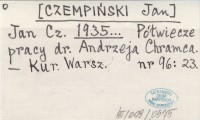 [CZEMPIŃSKI Jan]
Jan Cz. 1935... Półwiecze
pracy dr. Andrzeja Chramca.
— Kur. Warsz. nr 96: 23.